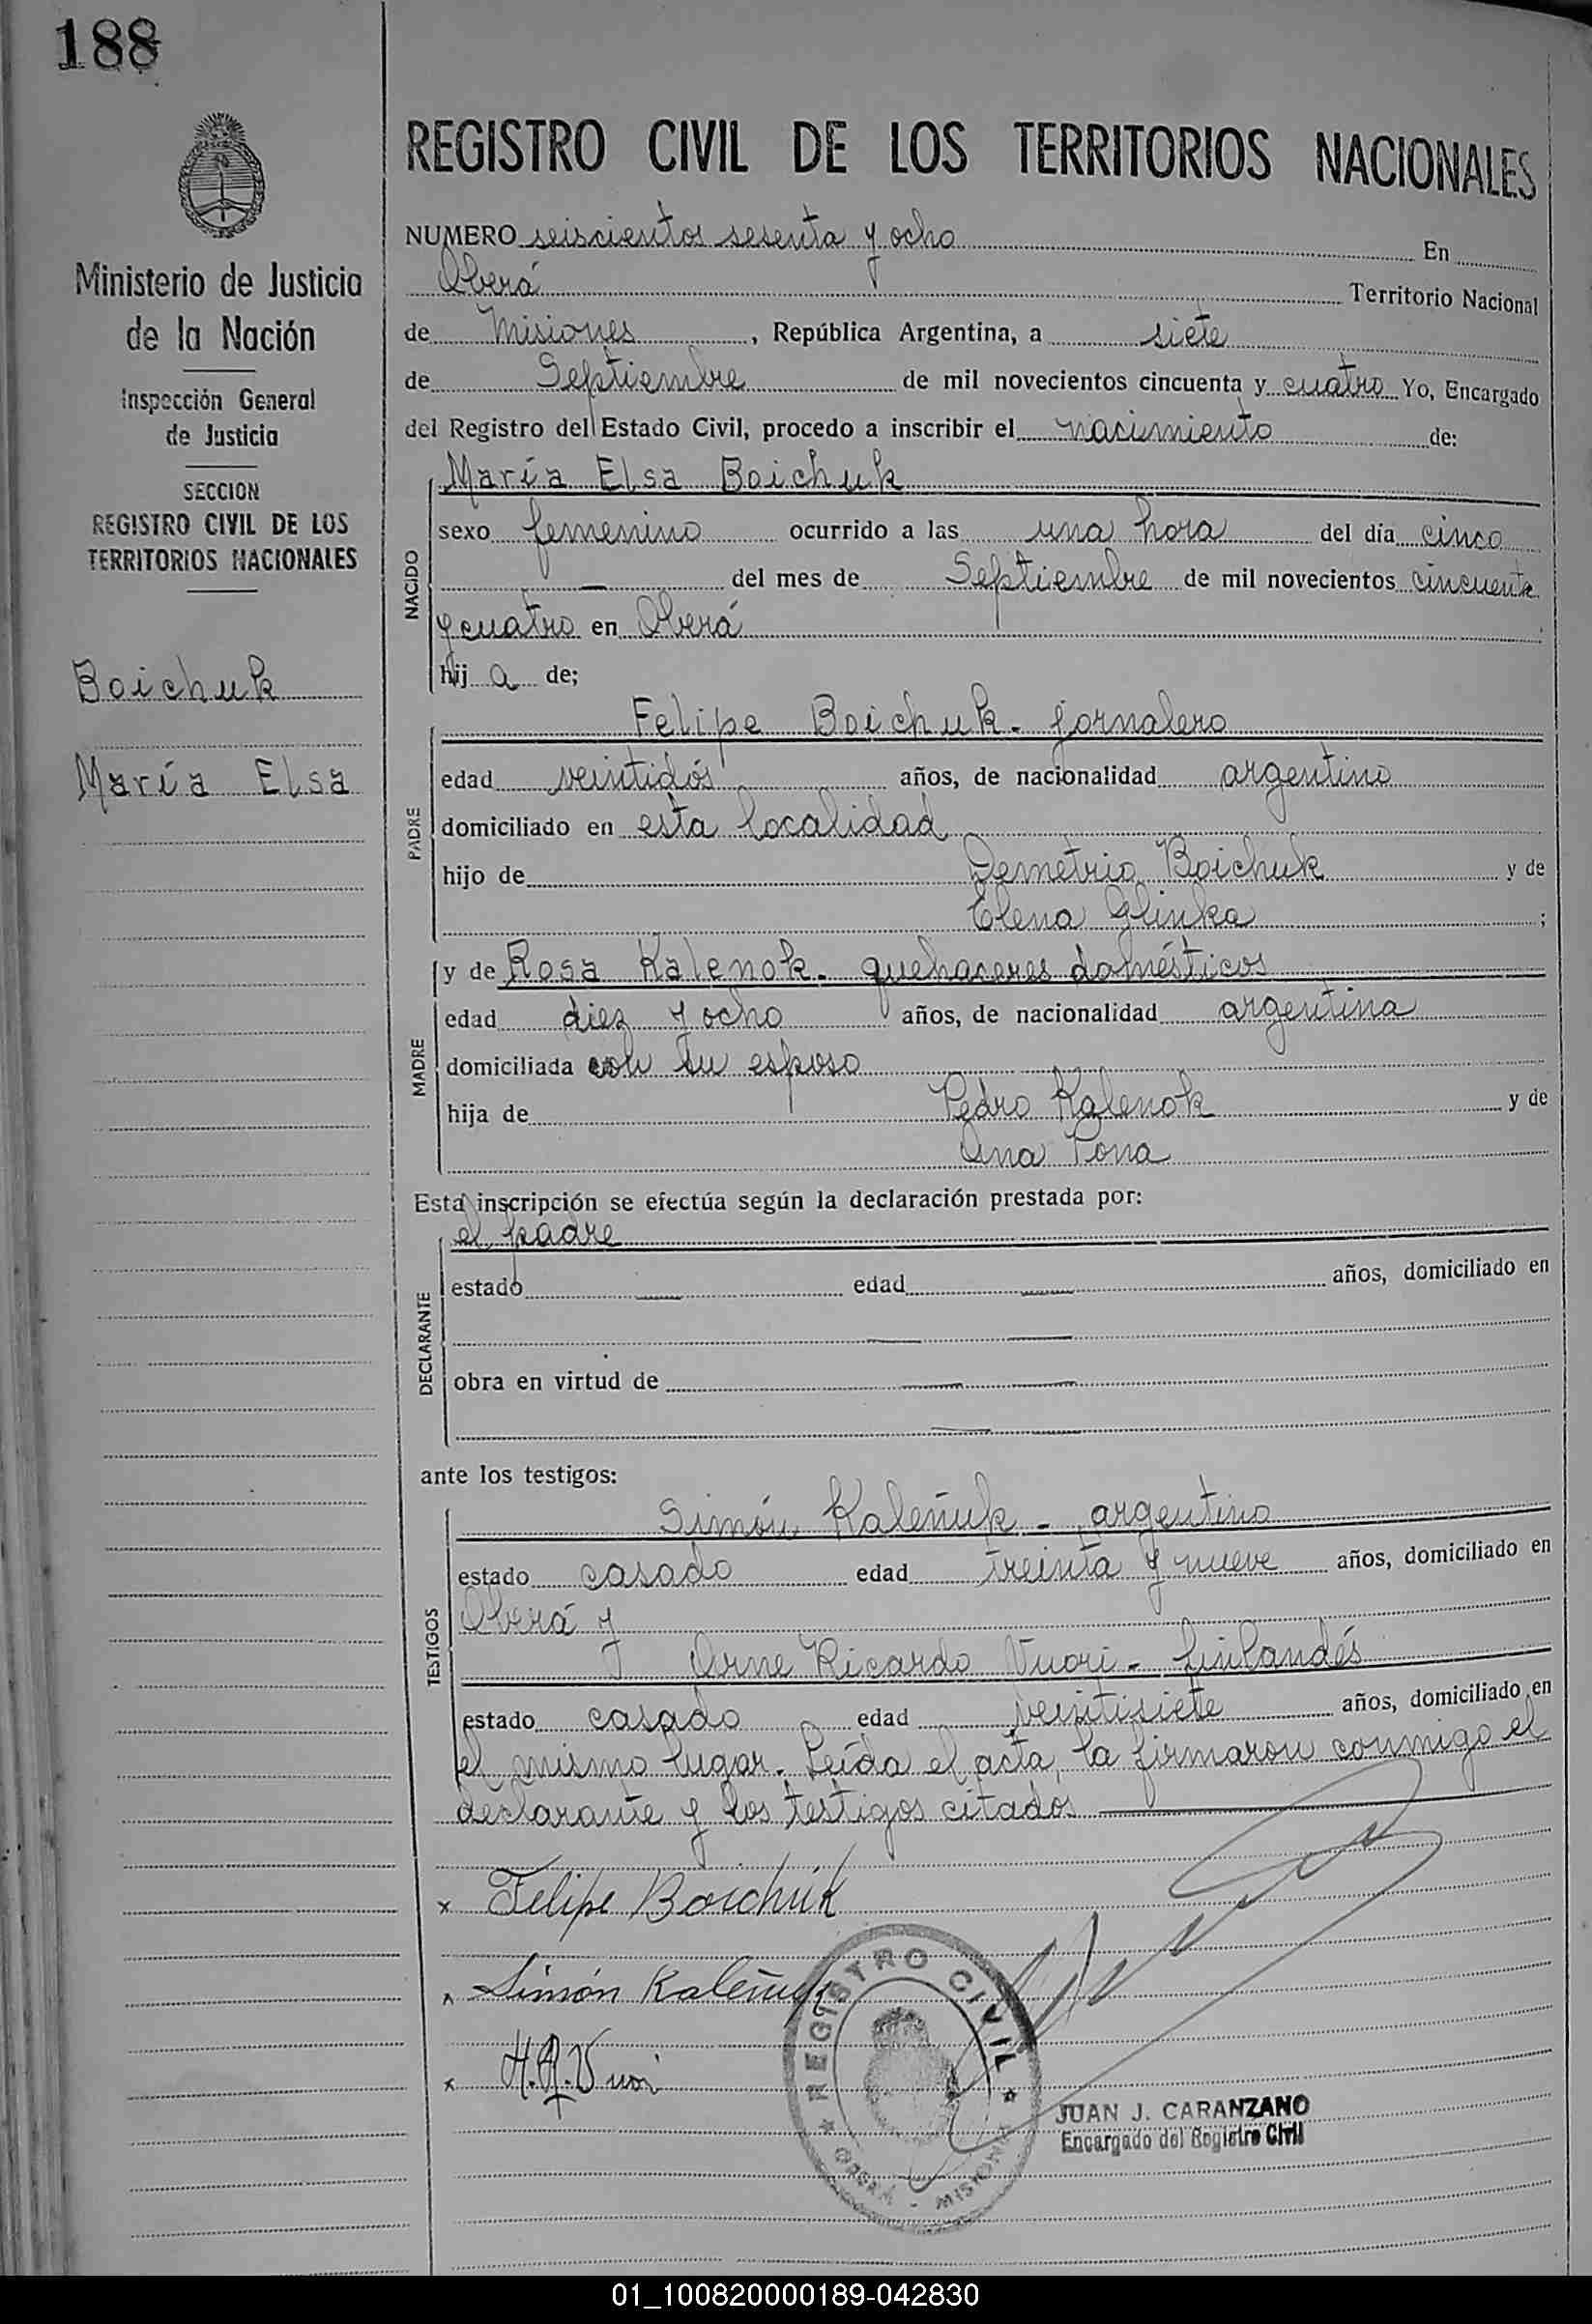 188
Ministerio de Justicia
de la Nación
Inspección General
de Justicia
SECCION
REGISTRO CIVIL DE LOS
TERRITORIOS NACIONALES
Boichuk
María Elsa
REGISTRO CIVIL DE LOS TERRITORIOS NACIONALES
NUMERO seiscientos sesenta y ocho En
Oberá Territorio Nacional
de Misiones, República Argentina, a siete
de Septiembre de mil novecientos cincuenta y cuatro Yo, Encargado
del Registro del Estado Civil, procedo a inscribir el nacimiento de:
María Elsa Boichuk
NACIDO
sexo femenino ocurrido a las una hora del día cinco
— del mes de Septiembre de mil novecientos cincuenta
y cuatro en Oberá
hij a de;
PADRE
Felipe Boichuk - jornalero
edad veintidós años, de nacionalidad argentino
domiciliado en esta localidad
hijo de Demetrio Boichuk y de
Elena Glinka ;
MADRE
y de Rosa Kalenok - quehaceres domésticos
edad diez y ocho años, de nacionalidad argentina
domiciliada con su esposo
hija de Pedro Kalenok y de
Ana Pona
Esta inscripción se efectúa según la declaración prestada por:
DECLARANTE
el padre
estado — edad — años, domiciliado en
— —
obra en virtud de — —
— —
ante los testigos:
TESTIGOS
Simón Kaleñuk - argentino
estado casado edad treinta y nueve años, domiciliado en
Oberá y
Arne Ricardo Vuori - finlandés
estado casado edad veintisiete años, domiciliado en
el mismo lugar. Leída el acta, la firmaron conmigo el
declarante y los testigos citados —
x Felipe Boichuk
x Simón Kaleñuk
x H.R.Vuori
REGISTRO CIVIL
OBERA - MISIONES
JUAN J. CARANZANO
Encargado del Registro Civil
01_100820000189-042830